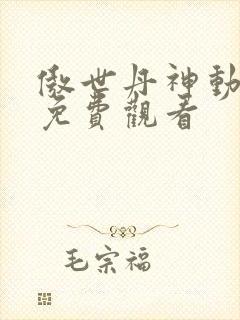 傲世丹神動
免費觀看
毛宗福